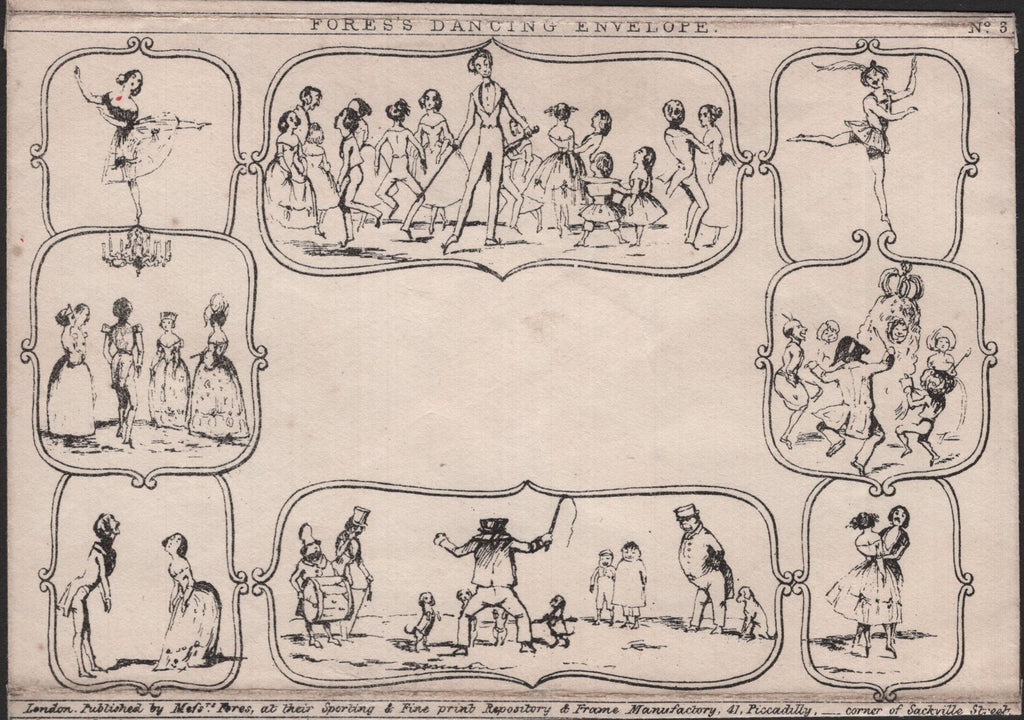 FORES'S DANCING ENVELOPE.
Nº 3.
London. Published by Messrs Fores, at their Sporting & Fine print Repository & Frame Manufactory, 41, Piccadilly, __ corner of Sackville Street.